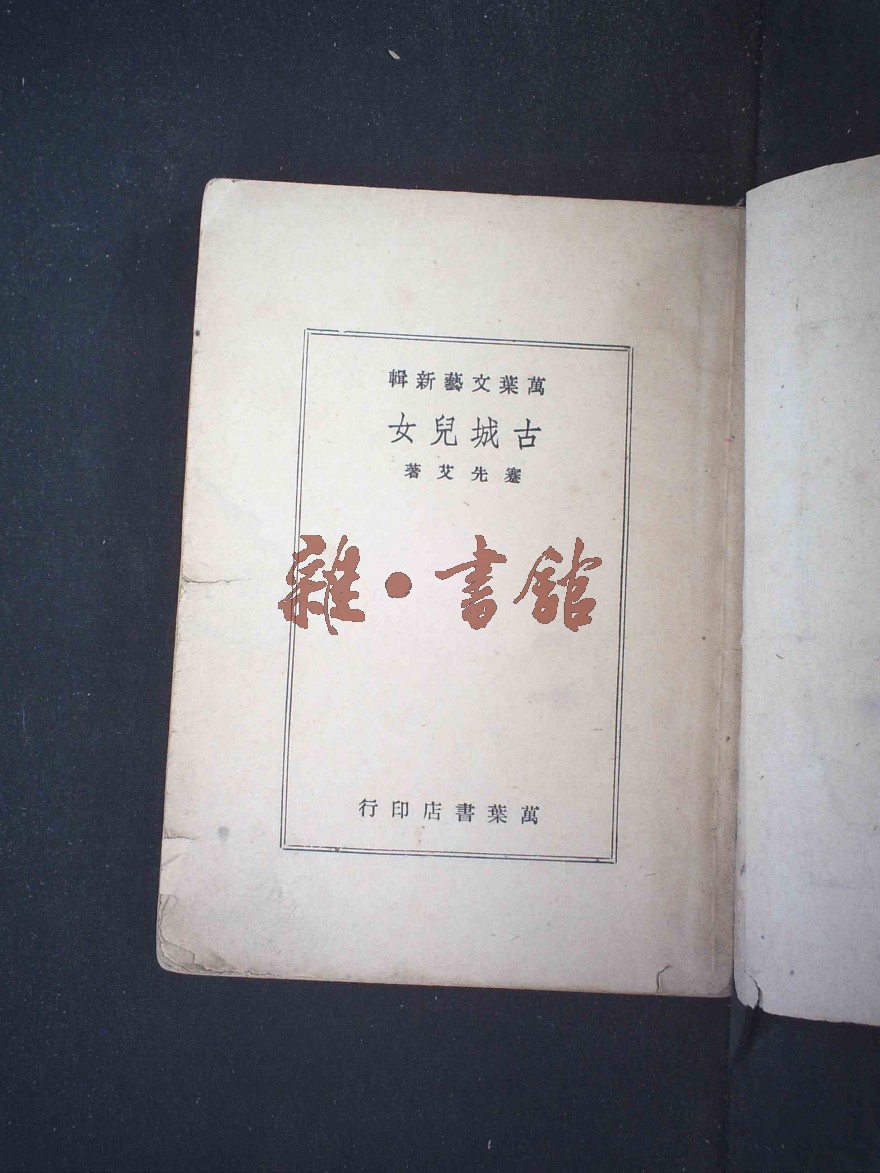 萬葉文藝新輯
古城兒女
蹇先艾著
雜·書館
萬葉書店印行